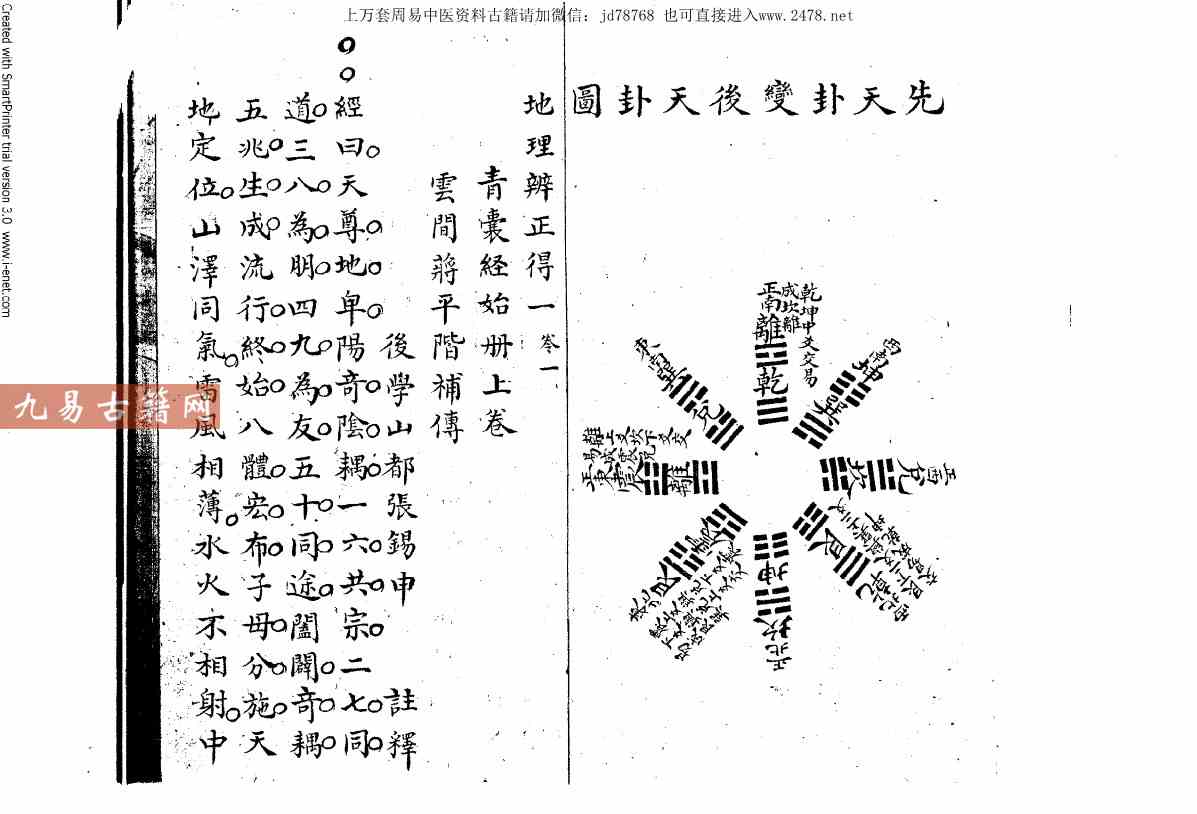 上万套周易中医资料古籍请加微信：jd78768 也可直接进入www.2478.net
Created with SmartPrinter trial version 3.0 www.i-enet.com
先天卦變後天卦圖
乾坤中爻交易
成坎離
正南離
乾
坤
巽
東南巽
兌
離上爻坎下爻交
易成震兌
正東震
離
坎
兌
正西
坤
坎
正北
艮
乾
艮
地理辨正得一 卷一
青囊經始册上卷
雲間蔣平階補傳
後學山都張錫申 註釋
經曰天尊地卑陽奇陰耦一六共宗二七同
道三八為朋四九為友五十同途闔闢奇耦
五兆生成流行終始八體宏布子母分施天
地定位山澤同氣雷風相薄水火不相射中
九易古籍网